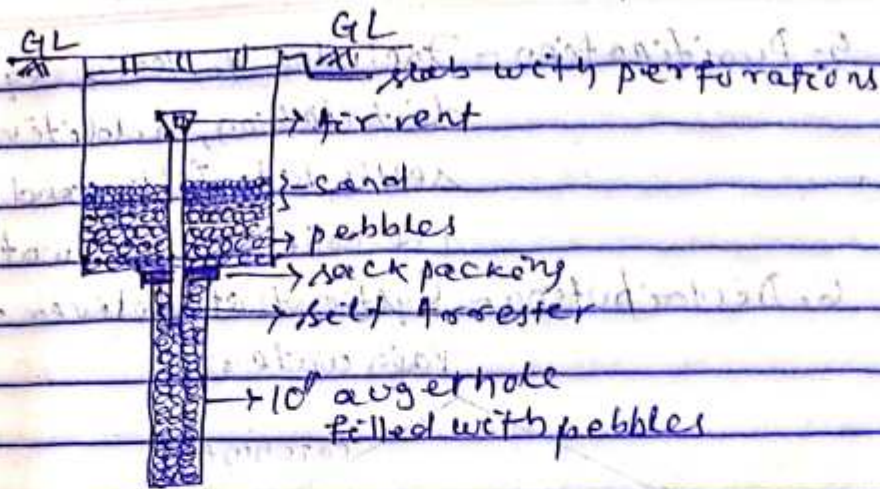 GL GL
slab with perforations
Air vent
sand
pebbles
sack packing
silt Arrester
10" augerhole
filled with pebbles